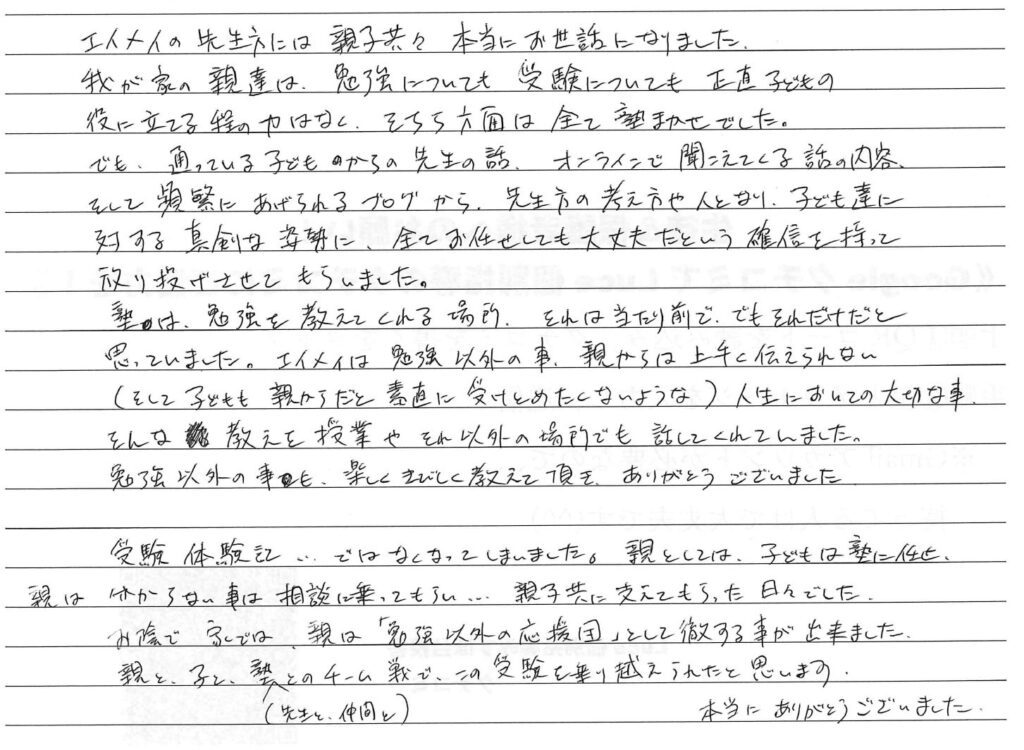 エイメイの先生方には親子共々本当にお世話になりました。
我が家の親達は、勉強についても受験についても正直子どもの
役に立てる程の力はなく、そちら方面は全て塾まかせでした。
でも、通っている子どものからの先生の話、オンラインで聞こえてくる話の内容、
そして頻繁にあげられるブログから、先生方の考え方や人となり、子ども達に
対する真剣な姿勢に、全てお任せしても大丈夫だという確信を持って
放り投げさせてもらいました。
塾は、勉強を教えてくれる場所、それは当たり前で、でもそれだけだと
思っていました。エイメイは勉強以外の事、親からは上手く伝えられない
(そして子どもも親からだと素直に受けとめたくないような)人生においての大切な事、
そんな教えを授業やそれ以外の場所でも話してくれていました。
勉強以外の事も、楽しくきびしく教えて頂き、ありがとうございました
受験体験記…ではなくなってしまいました。親としては、子どもは塾に任せ、
親は分からない事は相談に乗ってもらい…親子共に支えてもらった日々でした。
お陰で家では、親は「勉強以外の応援団」として徹する事が出来ました。
親と、子と、塾とのチーム戦で、この受験を乗り越えられたと思います。
(先生と、仲間と) 本当にありがとうございました。